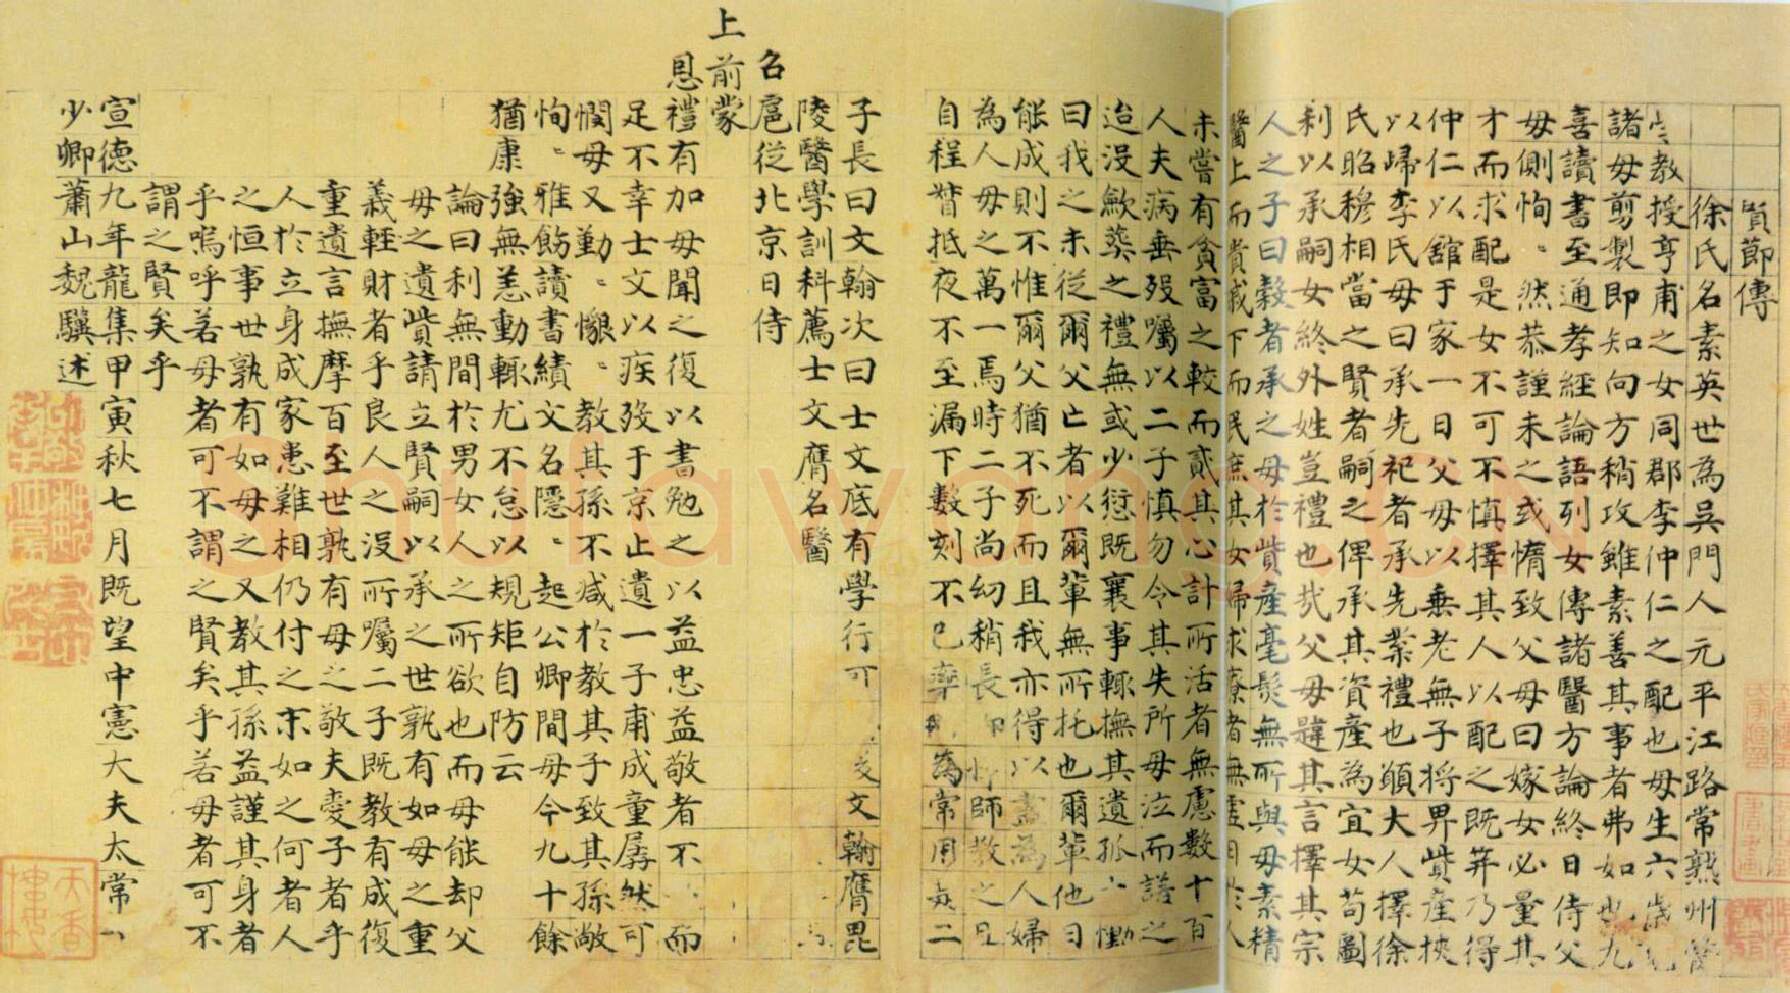 賢節傳
徐氏名素英世為吳門人元平江路常熟州
教授亨甫之女同郡李仲仁之配也母生六歲
諸母剪製即知向方稍攻雖素善其事者弗如也九
喜讀書至通孝經論語列女傳諸醫方論終日侍父
母側恂〻然恭謹未之或惰致父母曰嫁女必量其
才而求配是女不可不慎擇其人以配之既筓乃得
仲仁以舘于家一日父母以垂老無子将畀貲產挾
以歸李氏母曰承先祀者承先業禮也顧大人擇徐
氏昭穆相當之賢者嗣之俾承其資產為宜女苟圖
利以承嗣女終外姓豈禮也哉父母韙其言擇其宗
人之子曰穀者承之母於貲產毫髮無所與母素精
醫上而貴戚下而民庶其女婦求療者無虛日於人
未嘗有貧富之較而貳其心計所活者無慮數十百
人夫病垂歿囑以二子慎勿令其失所母泣而諾之
迨沒歛葬之禮無或少愆既襄事輒撫其遺孤慟
曰我之未從爾父亡者以爾輩無所托也爾輩他日
能成則不惟爾父猶不死而且我亦得以盡為人婦
為人母之萬一焉時二子尚幼稍長師教之
自程督抵夜不至漏下數刻不已率為常用是二
子長曰文翰次曰士文底有學行可文翰膺毘
陵醫學訓科薦士文膺名醫
召扈従北京日侍
上前蒙
恩禮有加母聞之復以書勉之以益忠益敬者不而
足不幸士文以疾歿于京止遺一子甫成童孱然可
憫母又勤〻懇〻教其孫不減於教其子致其孫敞
恂〻雅飭讀書績文名隱〻起公卿間母今九十餘
猶康強無恙動輒尤不怠以規矩自防云
論曰利無間於男女人之所欲也而母能却父
母之遺貲請立賢嗣以承之世孰有如母之重
義輕財者乎良人之沒所囑二子既教有成復
重遺言撫摩百至世孰有母之敬夫愛子者乎
人於立身成家患難相仍付之末如之何者人
之恒事世孰有如母之又教其孫益謹其身者
乎嗚呼若母者可不謂之賢矣乎若母者可不
謂之賢矣乎
宣德九年龍集甲寅秋七月既望中憲大夫太常
少卿蕭山魏驥述
shufawang.cn